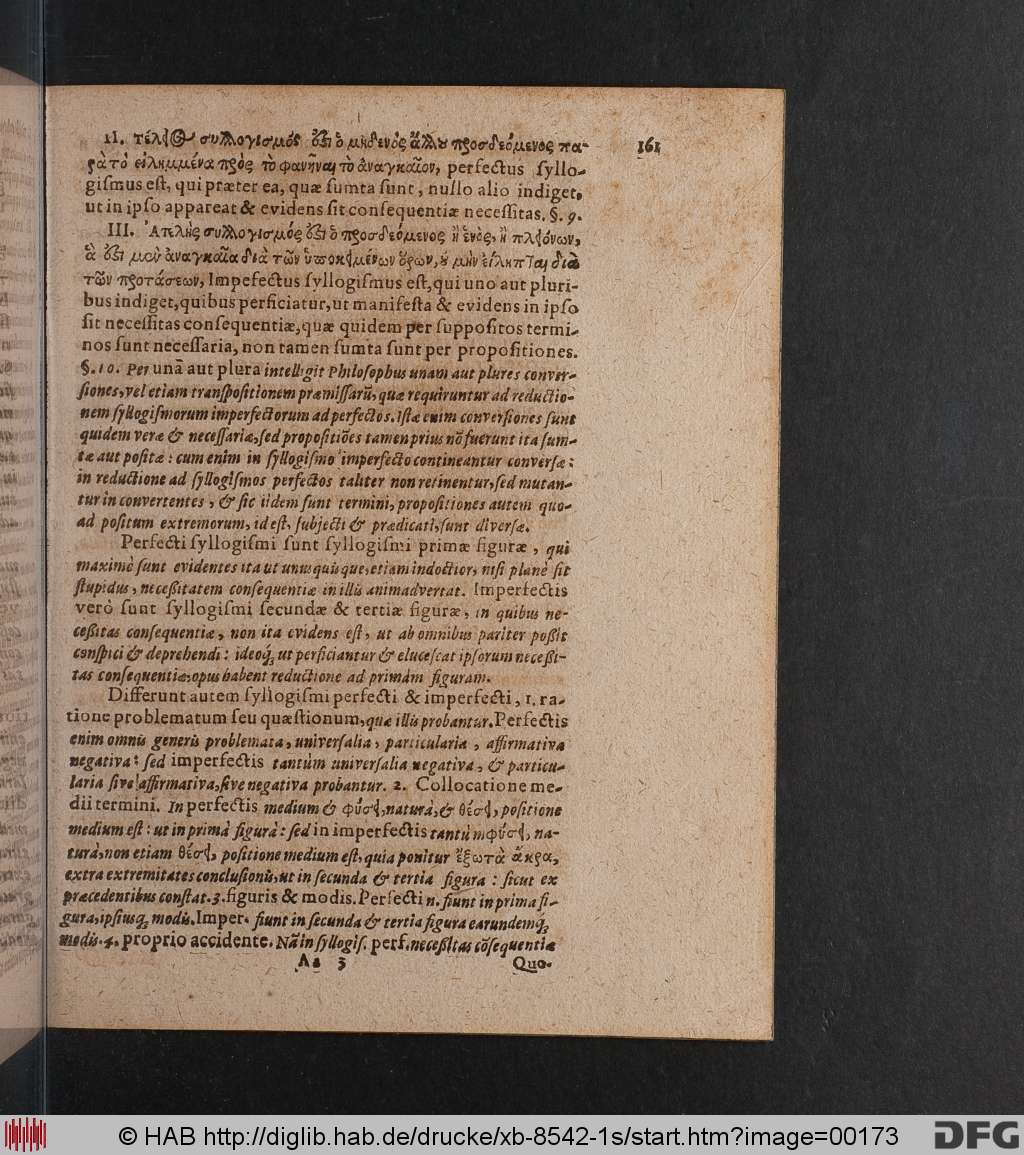 161
II. τέλει@ συλλογισμός ὅςι ὁ μηδενὸς ἄλλου προσδεόμενος πα-
ρὰ τὸ εἰλημμένα πρὸς τὸ φανῆναι τὸ ἀναγκαῖον, perfectus ſyllo-
giſmus eſt, qui præter ea, quæ ſumta ſunt, nullo alio indiget,
ut in ipſo appareat & evidens ſit conſequentiæ neceſſitas. §. 9.
III. Ἀτελὴς συλλογισμός ὅςι ὁ προσδεόμενος ἢ ἑνὸς, ἢ πλειόνων,
ἃ ὅςι μὲν ἀναγκαῖα διὰ τῶν ὑποκειμένων ὅρων, οὐ μὴν εἴληπται διὰ
τῶν προτάσεων, Impefectus ſyllogiſmus eſt, qui uno aut pluri-
bus indiget, quibus perficiatur, ut manifeſta & evidens in ipſo
ſit neceſſitas conſequentiæ, quæ quidem per ſuppoſitos termi-
nos ſunt neceſſaria, non tamen ſumta ſunt per propoſitiones.
§. 10. Per unā aut plura intelligit Philoſophus unam aut plures conver-
ſiones, vel etiam tranſpoſitionem præmiſſarũ, quæ requiruntur ad reductio-
nem ſyllogiſmorum imperfectorum ad perfectos. Iſtæ enim converſiones ſunt
quidem veræ & neceſſariæ, ſed propoſitiões tamen prius nõ fuerunt ita ſum-
tæ aut poſitæ: cum enim in ſyllogiſmo imperfecto contineantur converſæ:
in reductione ad ſyllogiſmos perfectos taliter non retinentur, ſed mutan-
tur in convertentes, & ſic iidem ſunt termini, propoſitiones autem quo-
ad poſitum extremorum, id eſt, ſubjecti & prædicati, ſunt diverſæ.
Perfecti ſyllogiſmi ſunt ſyllogiſmi primæ figuræ, qui
maximè ſunt evidentes ita ut unusquisque, etiam indoctior, niſi planè ſit
ſtupidus, neceßitatem conſequentiæ in illis animadvertat. Imperfectis
verò ſunt ſyllogiſmi ſecundæ & tertiæ figuræ, in quibus ne-
ceßitas conſequentiæ, non ita evidens eſt, ut ab omnibus pariter poßit
conſpici & deprehendi: ideoq́; ut perficiantur & eluceſcat ipſorum neceßi-
tas conſequentiæ, opus habent reductione ad primam figuram.
Differunt autem ſyllogiſmi perfecti & imperfecti, 1. ra-
tione problematum ſeu quæſtionum, quæ illis probantur. Perfectis
enim omnis generis problemata, univerſalia, particularia, affirmativa
negativa: ſed imperfectis tantùm univerſalia negativa, & particu-
laria ſive affirmativa, ſive negativa probantur. 2. Collocatione me-
dii termini. In perfectis medium & φύσει, naturà, & θέσει, poſitione
medium eſt: ut in primà figurà: ſed in imperfectis tantùm φύσει, na-
turà, non etiam θέσει, poſitione medium eſt, quia ponitur ἔξω τὰ ἄκρα,
extra extremitates concluſionis, ut in ſecunda & tertia figura: ſicut ex
præcedentibus conſtat. 3. figuris & modis. Perfecti n. fiunt in prima fi-
gura, ipſiusq́; modis. Imper. fiunt in ſecunda & tertia figura earundemq́;
modis. 4. proprio accidente. Nã in ſyllogiſ. perf. neceßitas cõſequentiæ
Aa 3 Quo-
© HAB http://diglib.hab.de/drucke/xb-8542-1s/start.htm?image=00173
DFG